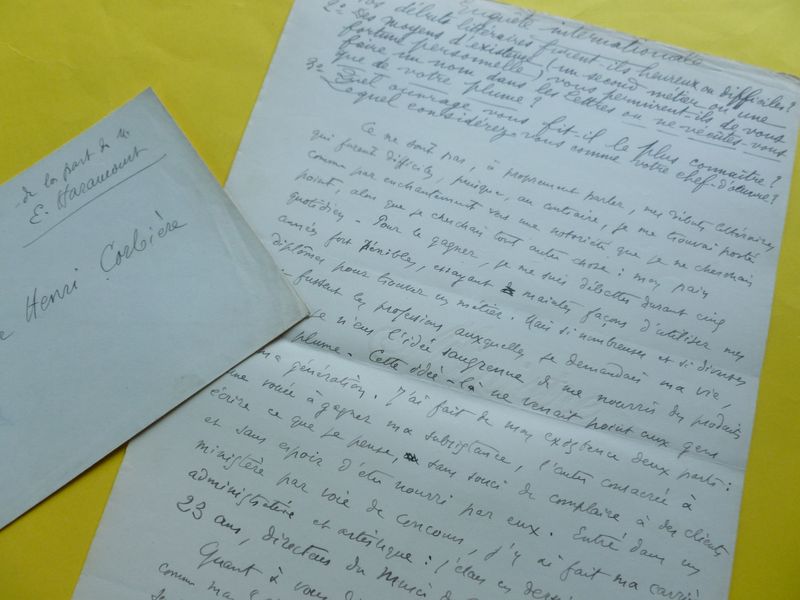 de la part de M.
E. Haraucourt
Henri Corbière
Enquête internationale
Vos débuts littéraires furent-ils heureux ou difficiles?
2° Les moyens d'existence (un second métier ou une
fortune personnelle) vous permirent-ils de vous
faire un nom dans les Lettres ou ne vécûtes-vous
que de votre plume?
3° Quel ouvrage vous fit-il le plus connaître?
Lequel considérez-vous comme votre chef-d'œuvre?
Ce ne sont pas, à proprement parler, mes débuts littéraires
qui furent difficiles, puisque, au contraire, je me trouvai porté
comme par enchantement vers une notoriété que je ne cherchais
point, alors que je cherchais tout autre chose: mon pain
quotidien. Pour le gagner, je me suis débattu durant cinq
années fort pénibles, essayant maintes façons d'utiliser mes
diplômes pour trouver un métier. Mais si nombreuses et si diverses
fussent les professions auxquelles je demandais ma vie,
je n'eus l'idée saugrenue de me nourrir des produits
plume. Cette idée-là ne venait point aux gens
ma génération. J'ai fait de mon existence deux parts:
une vouée à gagner ma subsistance, l'autre consacrée à
écrire ce que je pense, sans souci de complaire à des clients
et sans espoir d'être nourri par eux. Entré dans un
ministère par voie de concours, j'y ai fait ma carrière
administrative et artistique:
23 ans, directeur du Musée de
Quant à vous
comme